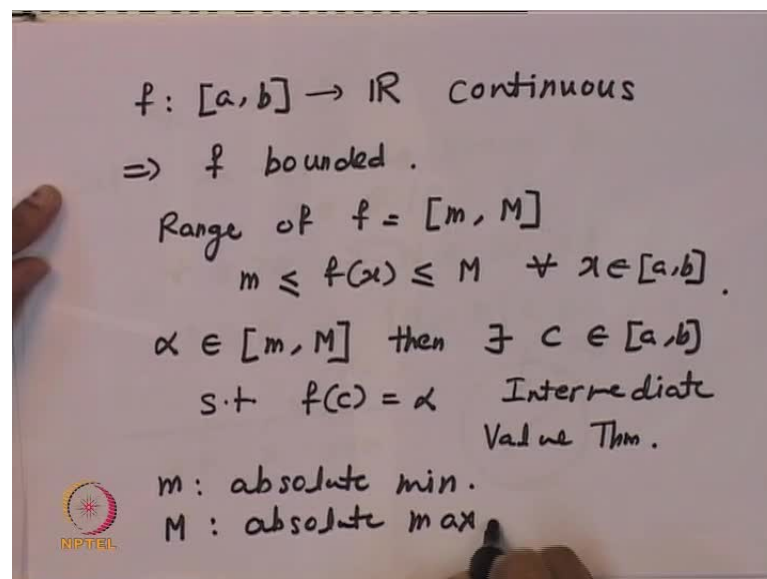 f: [a, b] → IR continuous
⇒ f bounded.
Range of f = [m, M]
m ≤ f(x) ≤ M ∀ x ∈ [a,b].
α ∈ [m, M] then ∃ c ∈ [a,b]
s.t f(c) = α Intermediate
Value Thm.
m: absolute min.
M : absolute max
NPTEL